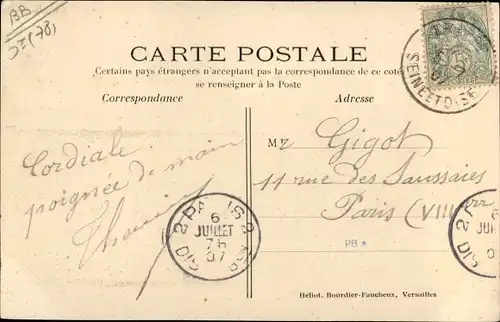 BB
(78)
CARTE POSTALE
Certains pays étrangers n'acceptant pas la correspondance de ce coté
se renseigner à la Poste
Correspondance
Adresse
SEINE ET OISE
Cordiale
poignée de main
Mr Gigot
11 rue des Saussaies
Paris (VIII
PARIS
6
JUILLET
7H
07
DIS
PB
Héliot. Bourdier-Faucheux, Versailles